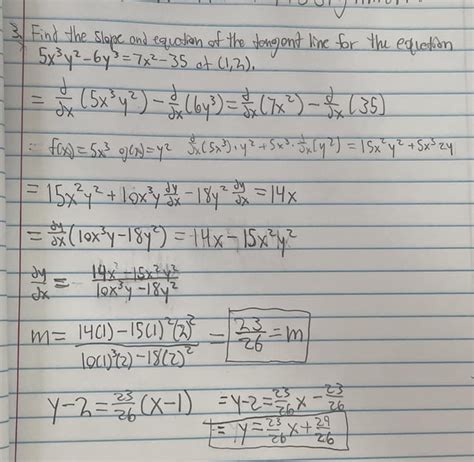 3. Find the slope and equation of the tangent line for the equation
5x³y²-6y³=7x²-35 at (1,2).
= d/dx (5x³y²) - d/dx (6y³) = d/dx (7x²) - d/dx (35)
f(x)=5x³ g(x)=y² d/dx(5x³)·y²+5x³·d/dx(y²) = 15x²y²+5x³2y
= 15x²y²+10x³y dy/dx -18y² dy/dx = 14x
= dy/dx (10x³y-18y²) = 14x-15x²y²
dy/dx = 14x-15x²y² / 10x³y-18y²
m= 14(1)-15(1)²(2)² / 10(1)³(2)-18(2)² - 23/26 = m
y-2= 23/26 (x-1) = y-2= 23/26 x - 23/26
t= y= 23/26 x+ 29/26